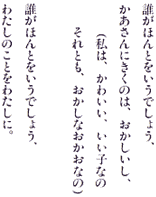 誰がほんとをいうでしょう、
かあさんにきくのは、おかしいし、
（私は、かわいい、いい子なの
それとも、おかしなおかおなの）
誰がほんとをいうでしょう、
わたしのことをわたしに。